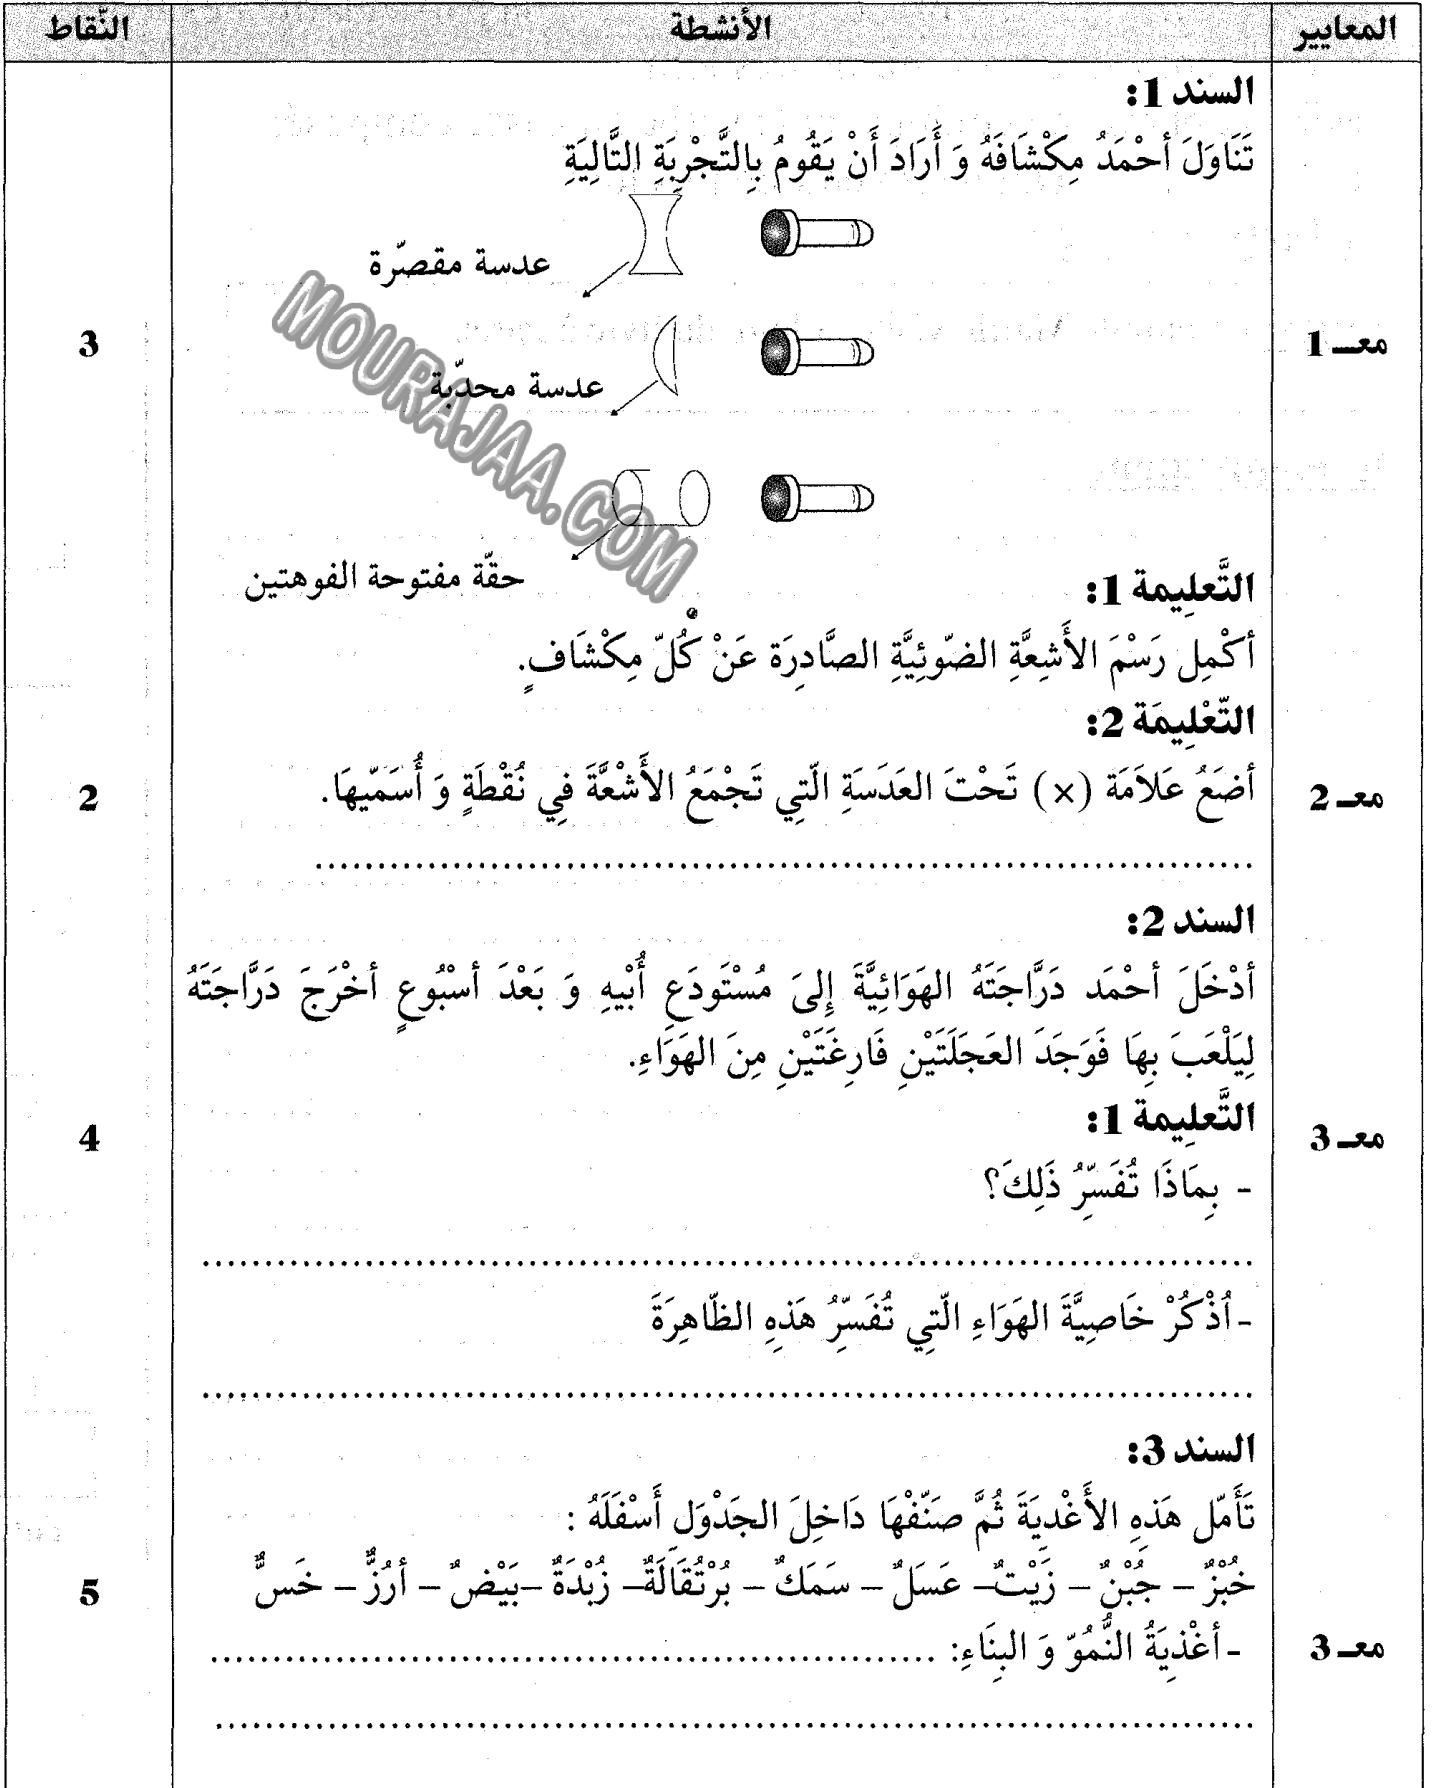 المعايير الأنشطة النّقاط
السند 1:
تَنَاوَلَ أحْمَدُ مِكْشَافَهُ وَ أَرَادَ أَنْ يَقُومُ بِالتَّجْرِبَةِ التَّالِيَةِ
عدسة مقصّرة
معـ 1
3
عدسة محدّبة
MOURAJAA.COM
حقّة مفتوحة الفوهتين
التَّعلِيمة 1:
أكْمِل رَسْمَ الأَشِعَّةِ الضّوئِيَّةِ الصَّادِرَة عَنْ كُلّ مِكْشَافٍ.
التّعْلِيمَة 2:
معـ 2
أضَعُ عَلاَمَة (×) تَحْتَ العَدَسَةِ الّتِي تَجْمَعُ الأَشْعَّةَ فِي نُقْطَةٍ وَ أُسَمّيهَا.
2
................................................................
السند 2:
أدْخَلَ أحْمَد دَرَّاجَتَهُ الهَوَائِيَّةَ إِلىَ مُسْتَودَعِ أَبْيهِ وَ بَعْدَ أسْبُوعٍ أخْرَجَ دَرَّاجَتَهُ
لِيَلْعَبَ بِهَا فَوَجَدَ العَجَلَتَيْنِ فَارِغَتَيْنِ مِنَ الهَوَاءِ.
معـ 3
التَّعلِيمة 1:
4
- بِمَاذَا تُفَسّرُ ذَلِكَ؟
................................................................
- اُذْكُرْ خَاصِيَّةَ الهَوَاءِ الّتِي تُفَسّرُ هَذِهِ الظّاهِرَةَ
................................................................
السند 3:
تَأَمّل هَذِهِ الأَغْدِيَةَ ثُمَّ صَنّفْهَا دَاخِلَ الجَدْوَلِ أَسْفَلَهُ :
خُبْزٌ – جُبْنٌ – زَيْتٌ – عَسَلٌ – سَمَكٌ – بُرْتُقَالَةٌ – زُبْدَةٌ – بَيْضٌ – أرُزٌّ – خَسٌّ
5
معـ 3
- أغْذِيَةُ النُّمُوّ وَ البِنَاءِ: ................................................
................................................................